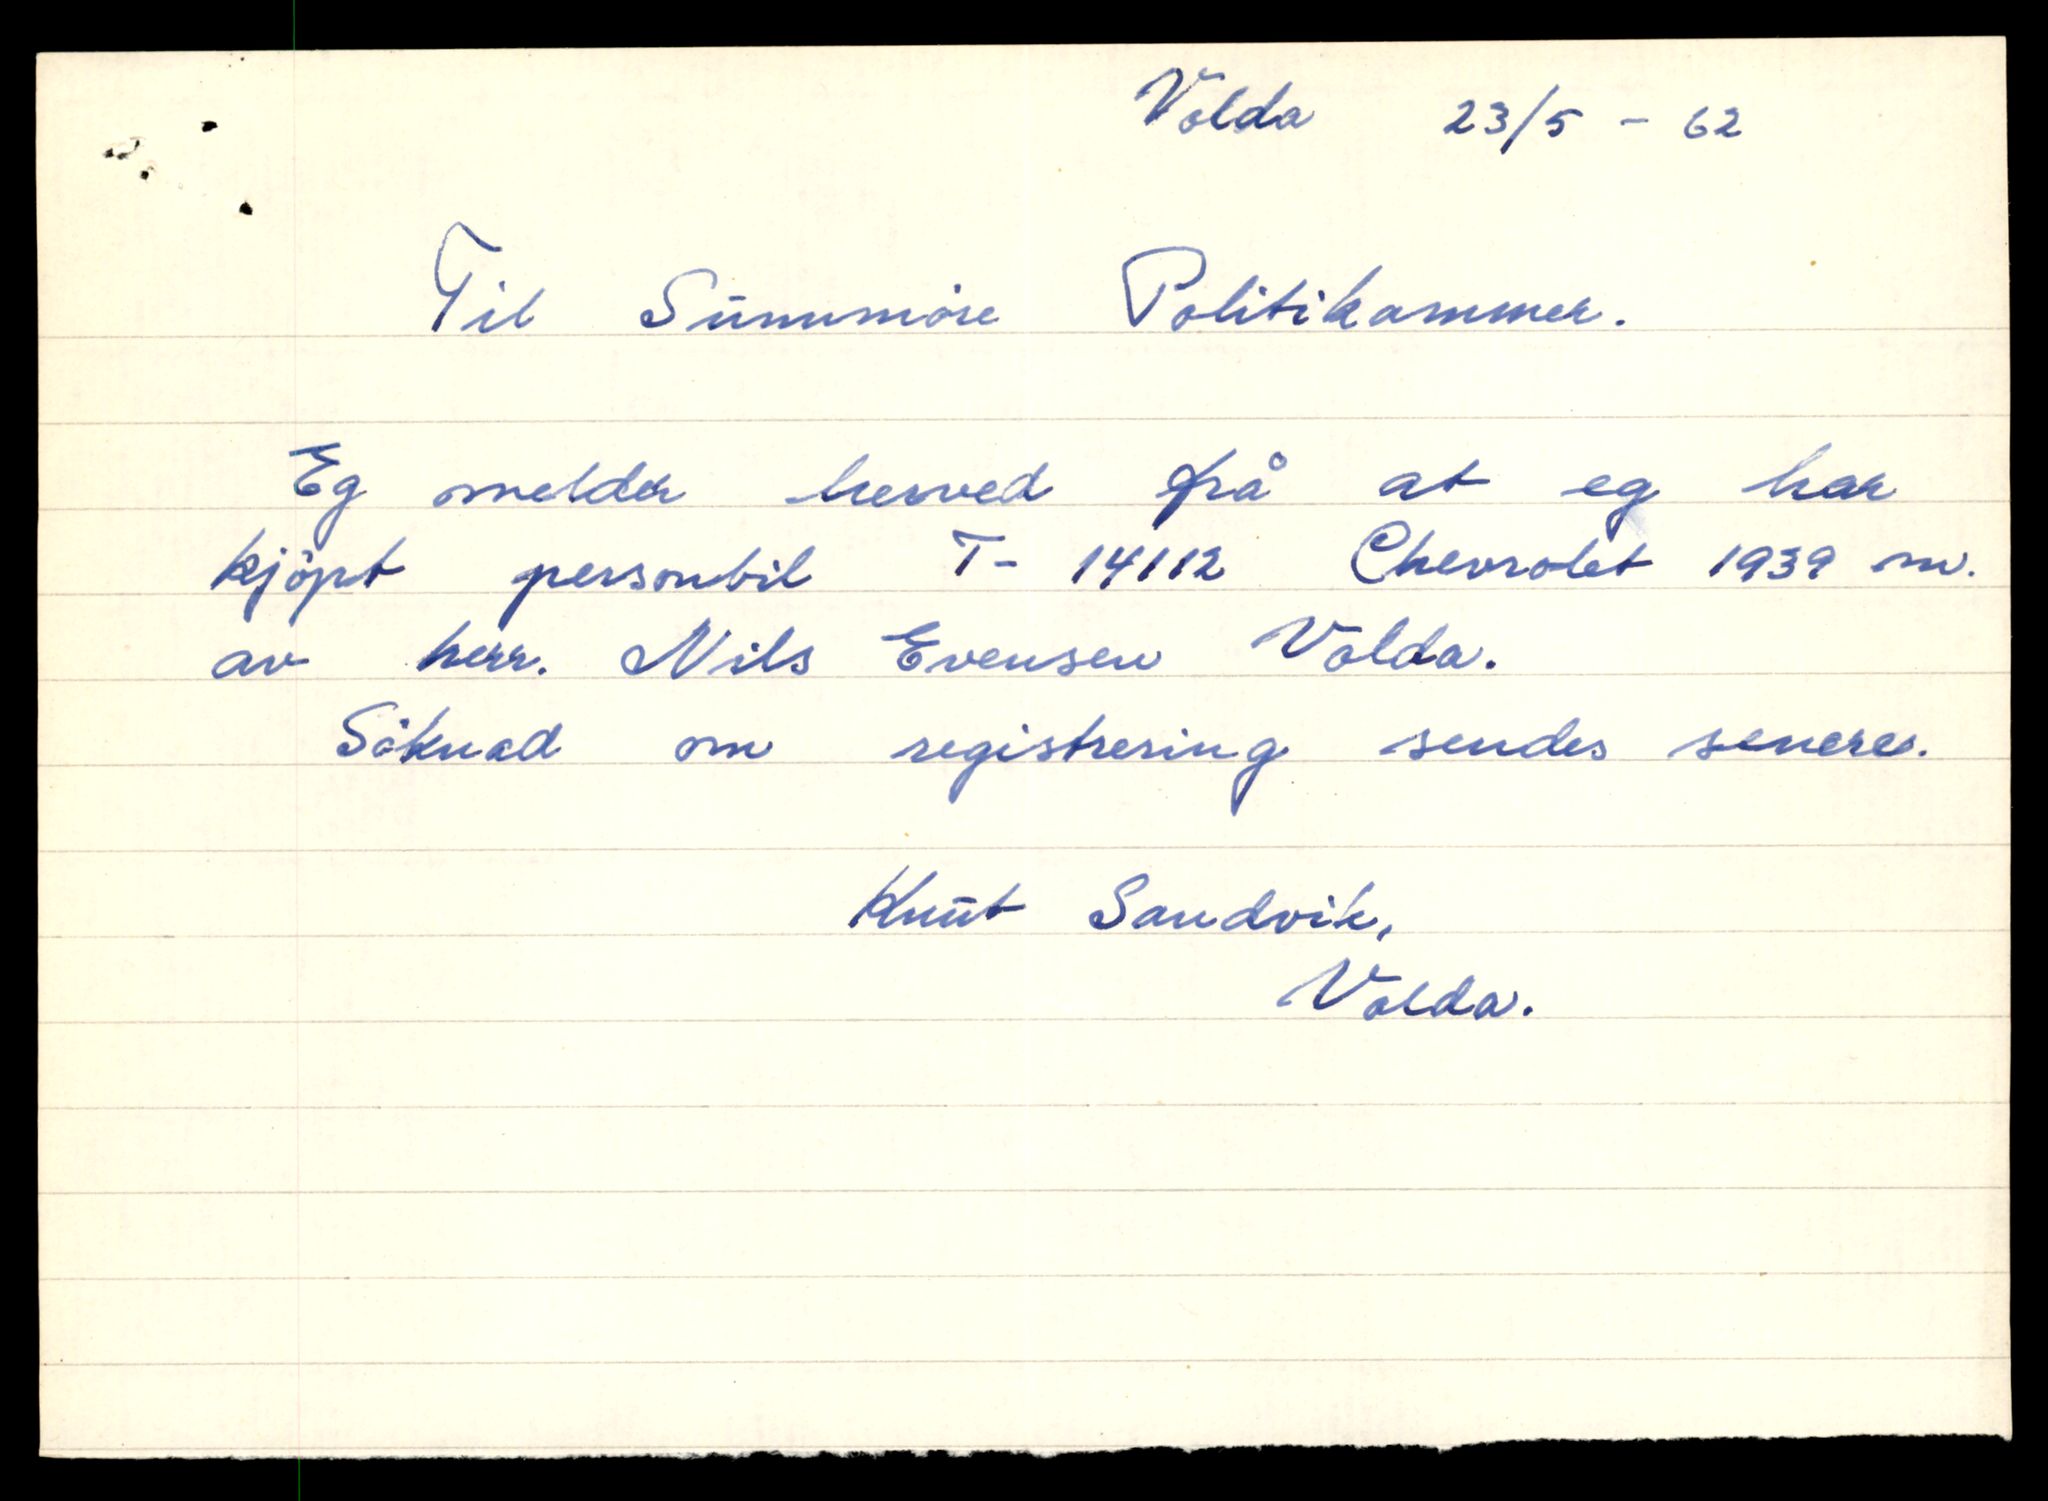 Volda 23/5 - 62
Til Sunnmöre Politikammer.
Eg melder herved frå at eg har
kjöpt personbil T- 14112 Chevrolet 1939 m.
av herr. Nils Evensen Volda.
Söknad om registrering sendes senere.
Knut Sandvik,
Volda.